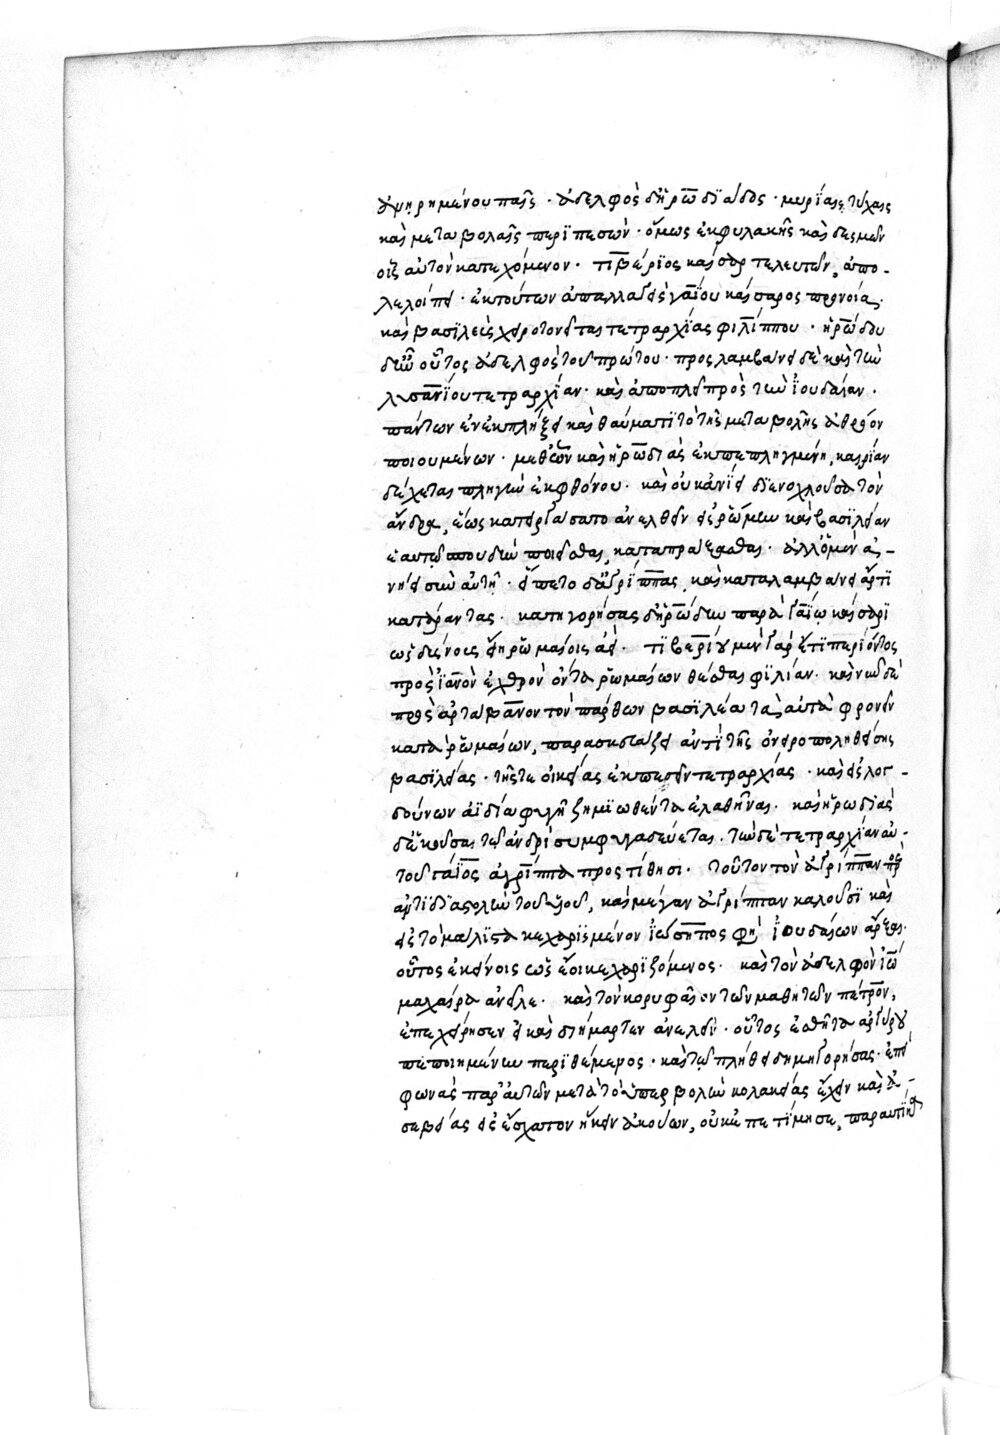 ἀνῃρημένου παῖς · ἀδελφὸς δὴ ἡρωδιάδος · μυρίαις τύχαις
καὶ μεταβολαῖς περιπεσών · ὅμως ἐκ φυλακῆς καὶ δεσμῶν
οἷς αὐτὸν κατεχόμενον · τιβέριος καῖσαρ τελευτῶν, ἀπο-
λελοίπει · ἐκ τούτων ἀπαλλαγεὶς γαΐου καίσαρος προνοία
καὶ βασιλεὺς χειροτονεῖται τετραρχίας φιλίππου · ἡρώδου
δ' ἦν οὗτος ἀδελφὸς τοῦ πρώτου · προσλαμβάνει δὲ καὶ τὴν
λυσανίου τετραρχίαν · καὶ ἀποπλεῖ πρὸς τὴν ἰουδαίαν ·
πάντων ἐν ἐκπλήξει καὶ θαύματι τὸ τῆς μεταβολῆς ἀθρόον
ποιουμένων · μεθ' ὧν καὶ ἡρωδιὰς ἐκπεπληγμένη, καιρίαν
δέχεται πληγὴν ἐκ φθόνου · καὶ οὐκ ἀνίει διενοχλοῦσα τὸν
ἄνδρα, ἕως κατειργάσατο ἀνελθεῖν εἰς ῥώμην καὶ βασιλείαν
ἑαυτῷ σπουδὴν ποιεῖσθαι, καταπράξασθαι · ἀλλ' ὁ μὲν ἀ-
νήει σὺν αὐτῇ · εἵπετο δ' ἀγρίππας, καὶ καταλαμβάνει ἄρτι
κατάραντας · κατηγορήσας δ' ἡρώδην παρὰ γαΐῳ καίσαρι
ὡς δύσνους εἴη ῥωμαίοις ἀεί · τιβερίου μὲν γὰρ ἔτι περιόντος
πρὸς ἰανὸν ἐχθρὸν ὄντα ῥωμαίων θέσθαι φιλίαν · καὶ νῦν δὲ
πρὸς ἀρτάβανον τὸν πάρθων βασιλέα τὰ αὐτὰ φρονεῖν
κατὰ ῥωμαίων, παρασκευάζει ἀντὶ τῆς ὀνειροποληθείσης
βασιλείας · τῆς τε οἰκείας ἐκπεσεῖν τετραρχίας · καὶ εἰς λογ-
δούνων ἀϊδίῳ φυγῇ ζημιωθέντα ἐλαθῆναι · καὶ ἡρωδιὰς
δὲ ἄκουσα τῷ ἀνδρὶ συμφυγαδεύεται · τὴν δὲ τετραρχίαν αὐ-
τοῦ γάϊος ἀγρίππᾳ προστίθησι · τοῦτον τὸν ἀγρίππαν πρὸς
ἀντιδιαστολὴν τοῦ υἱοῦ, καὶ μέγαν ἀγρίππαν καλοῦσι καὶ
εἰς τὸ μάλιστα κεχαρισμένον ἰώσηπος φησὶ ἰουδαίων ἄρξαι ·
οὗτος ἐκείνοις ὡς ἔοικε χαριζόμενος · καὶ τὸν ἀδελφὸν ἰωάννου
μαχαίρᾳ ἀνεῖλε · καὶ τὸν κορυφαῖον τῶν μαθητῶν πέτρον,
ἐπεχείρησεν εἰ καὶ διήμαρτεν ἀνελεῖν · οὗτος ἐσθῆτα ἀργύρου
πεποιημένην περιθέμενος · καὶ τῷ πλήθει δημηγορήσας · ἐπεὶ
φωνὰς παρ' αὐτῶν μετὰ τὸ ὑπερβολὴν κολακείας ἔχειν καὶ ἀ-
σεβείας εἰς ἔσχατον ἥκειν ἀκούων, οὐκ ἐπετίμησε, παραυτίκα